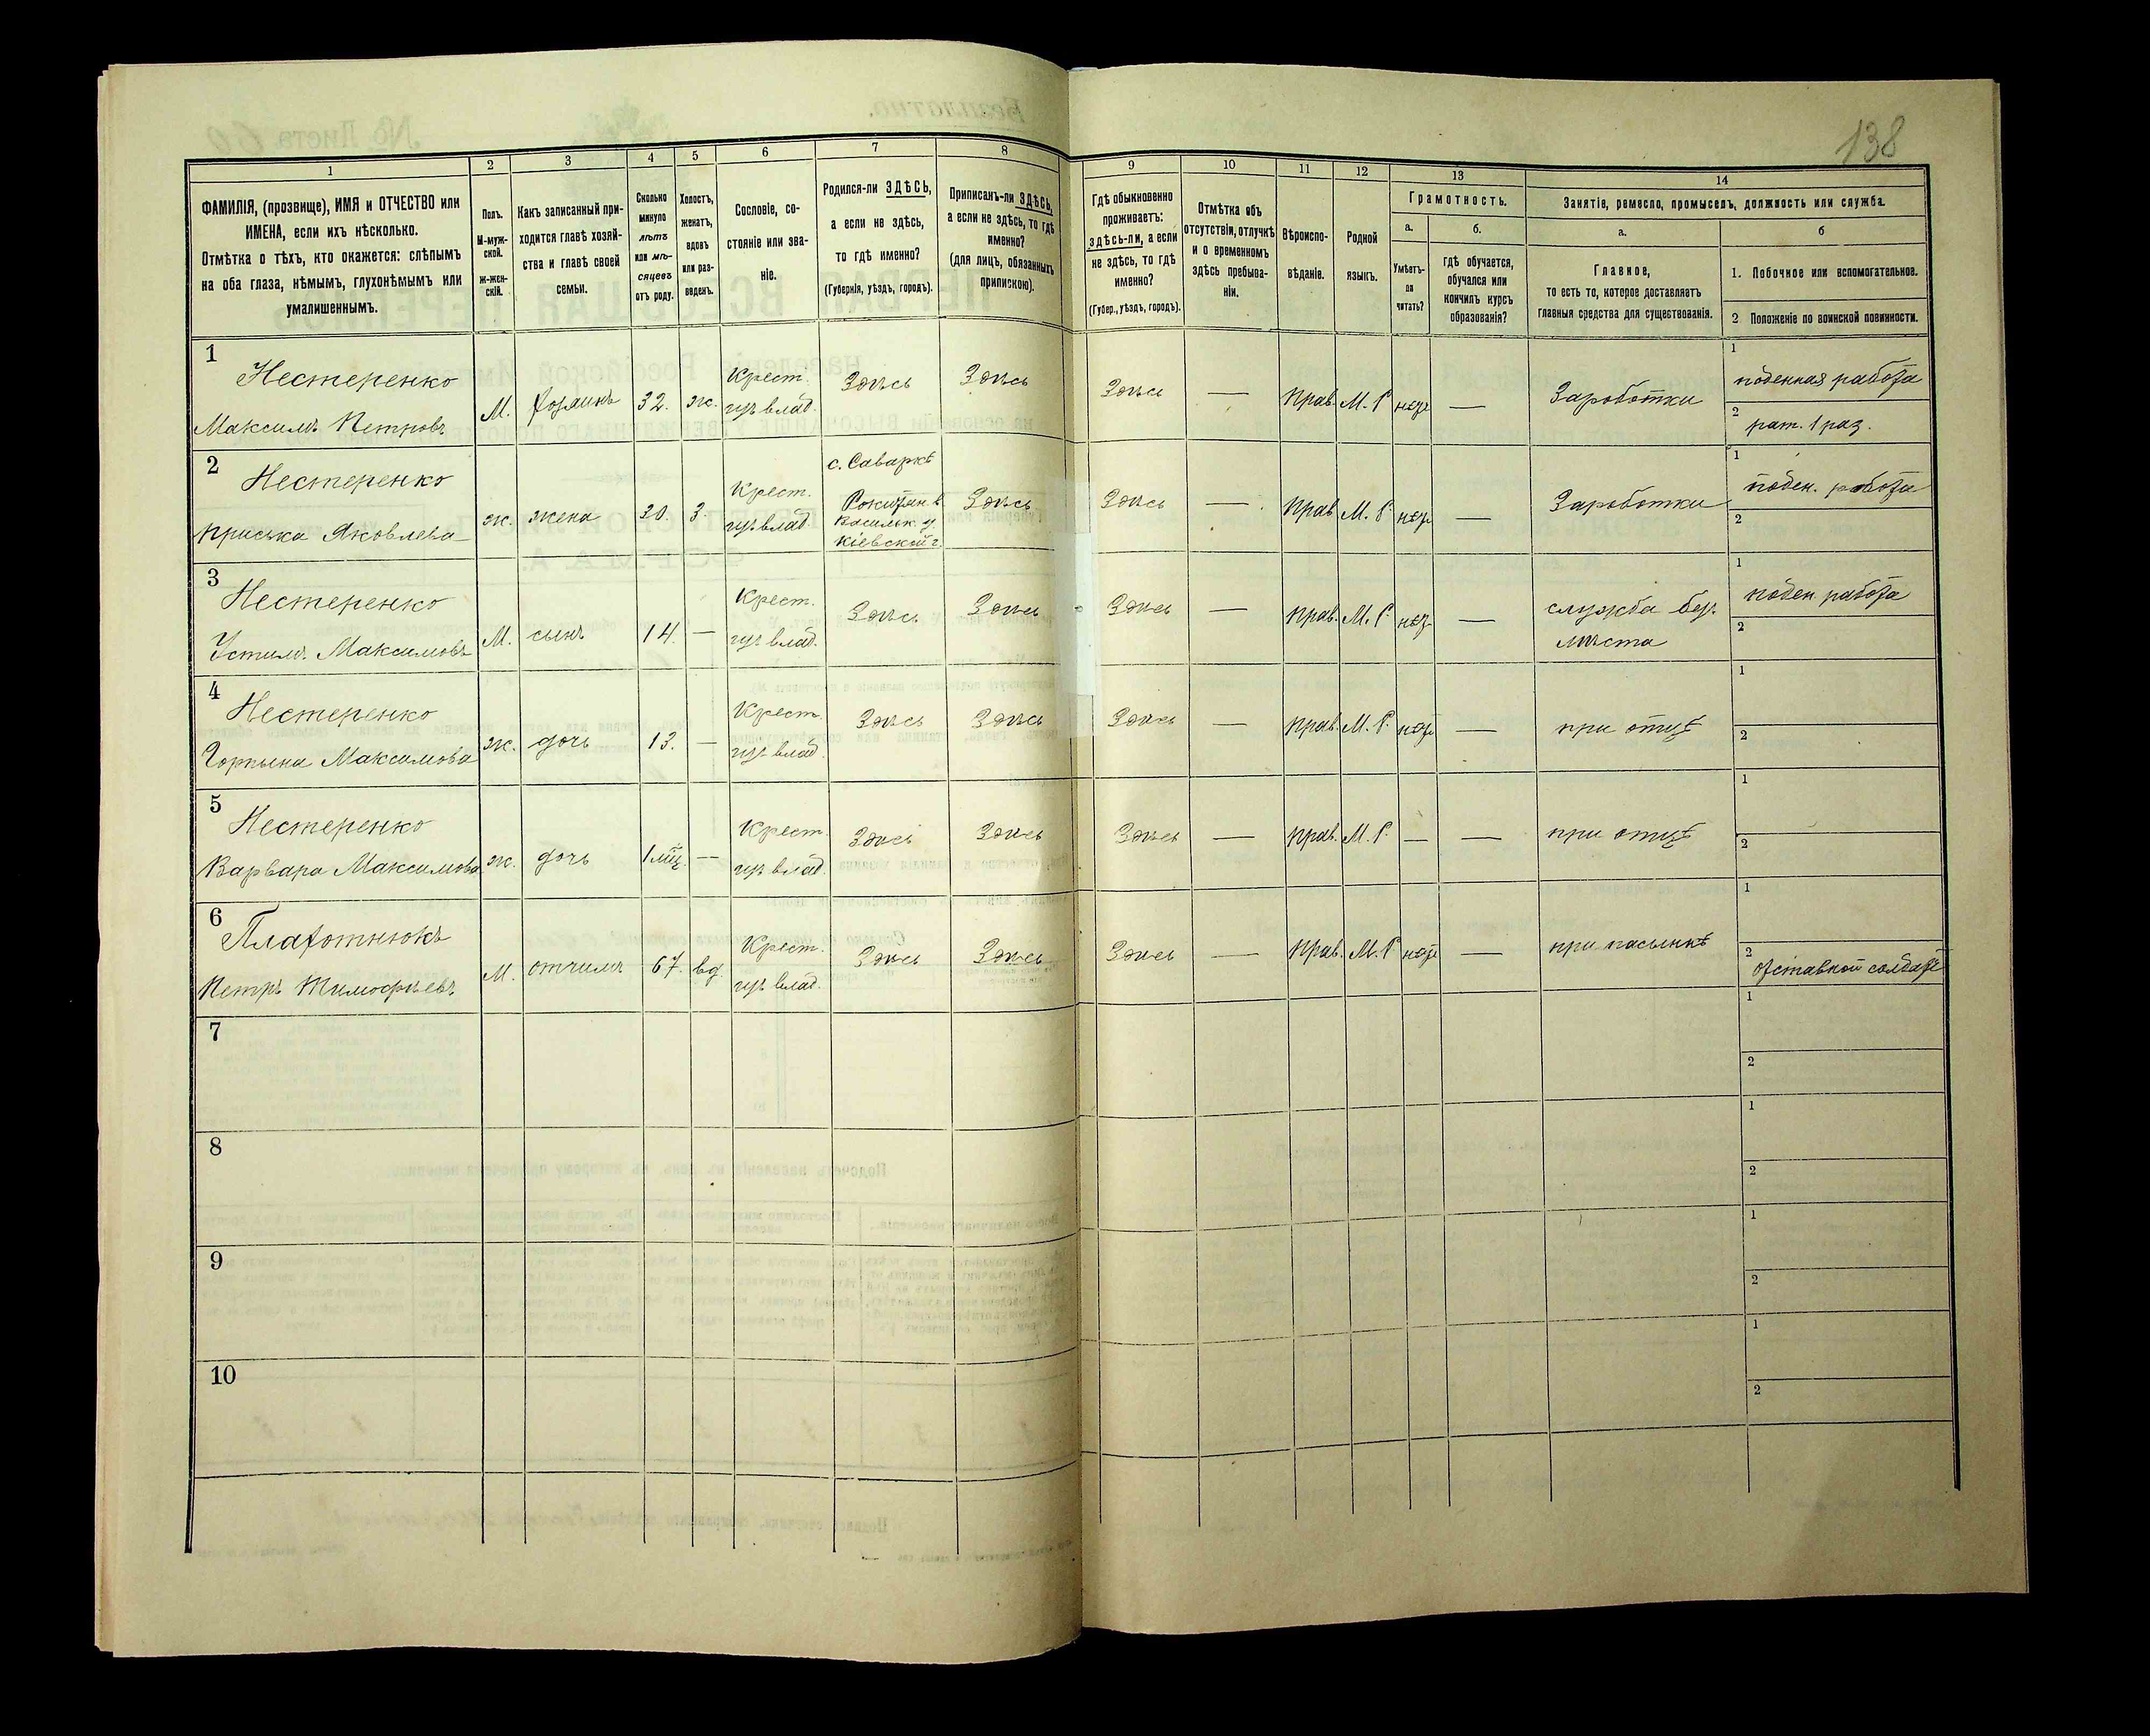 138
1
2
3
4
5
6
7
8
9
10
11
12
13
14
ФАМИЛІЯ, (прозвище), ИМЯ и ОТЧЕСТВО или
ИМЕНА, если ихъ нѣсколько.
Отмѣтка о тѣхъ, кто окажется: слѣпымъ
на оба глаза, нѣмымъ, глухонѣмымъ или
умалишеннымъ.
Полъ.
М-муж-
ской.
Ж-жен-
скій.
Какъ записанный при-
ходится главѣ хозяй-
ства и главѣ своей
семьи.
Сколько
минуло
лѣтъ
или мѣ-
сяцевъ
отъ роду.
Холостъ,
женатъ,
вдовъ
или раз-
веденъ.
Сословіе, со-
стояніе или зва-
ніе.
Родился-ли ЗДѢСЬ,
а если не здѣсь,
то гдѣ именно?
(Губернія, уѣздъ, городъ).
Приписанъ-ли ЗДѢСЬ,
а если не здѣсь, то гдѣ
именно?
(для лицъ, обязанныхъ
припискою).
Гдѣ обыкновенно
проживаетъ:
здѣсь-ли, а если
не здѣсь, то гдѣ
именно?
(Губер., уѣздъ, городъ).
Отмѣтка объ
отсутствіи, отлучкѣ
и о временномъ
здѣсь пребыва-
ніи.
Вѣроиспо-
вѣданіе.
Родной
языкъ.
Грамотность.
а.
Умѣетъ-
ли
читать?
б.
гдѣ обучается,
обучался или
кончилъ курсъ
образованія?
Занятіе, ремесло, промыселъ, должность или служба.
а.
Главное,
то есть то, которое доставляетъ
главныя средства для существованія.
б
1. Побочное или вспомогательное.
2 Положеніе по воинской повинности.
1
Нестеренко
Максимъ Петровъ
М.
хозяинъ
32.
ж.
Крест.
изъ влад.
Здѣсь
Здѣсь
Здѣсь
—
Прав.
М. Р.
нѣтъ
—
Заработки
1
поденная работа
2
рат. 1 раз.
2
Нестеренко
Приська Яковлева
ж.
жена
30.
З.
Крест.
изъ влад.
с. Саваркѣ
Рокитян. в.
Васильк. у.
Кіевской г.
Здѣсь
Здѣсь
—
Прав.
М. Р.
нѣтъ
—
Заработки
1
поден. работа
2
3
Нестеренко
Устимъ Максимовъ
М.
сынъ
14.
—
Крест.
изъ влад.
Здѣсь
Здѣсь
Здѣсь
—
Прав.
М. Р.
нѣтъ
—
служба безъ
мѣста
1
поден. работа
2
4
Нестеренко
Горпына Максимова
ж.
дочь
13.
—
Крест.
изъ влад.
Здѣсь
Здѣсь
Здѣсь
—
Прав.
М. Р.
нѣтъ
—
при отцѣ
1
2
5
Нестеренко
Варвара Максимова
ж.
дочь
1 мѣс.
—
Крест.
изъ влад.
Здѣсь
Здѣсь
Здѣсь
—
Прав.
М. Р.
—
—
при отцѣ
1
2
6
Плахотнюкъ
Петръ Тимофѣевъ
М.
отчимъ
67.
вд.
Крест.
изъ влад.
Здѣсь
Здѣсь
Здѣсь
—
Прав.
М. Р.
нѣтъ
—
при пасынкѣ
1
2
отставной солдатъ
7
1
2
8
1
2
9
1
2
10
1
2